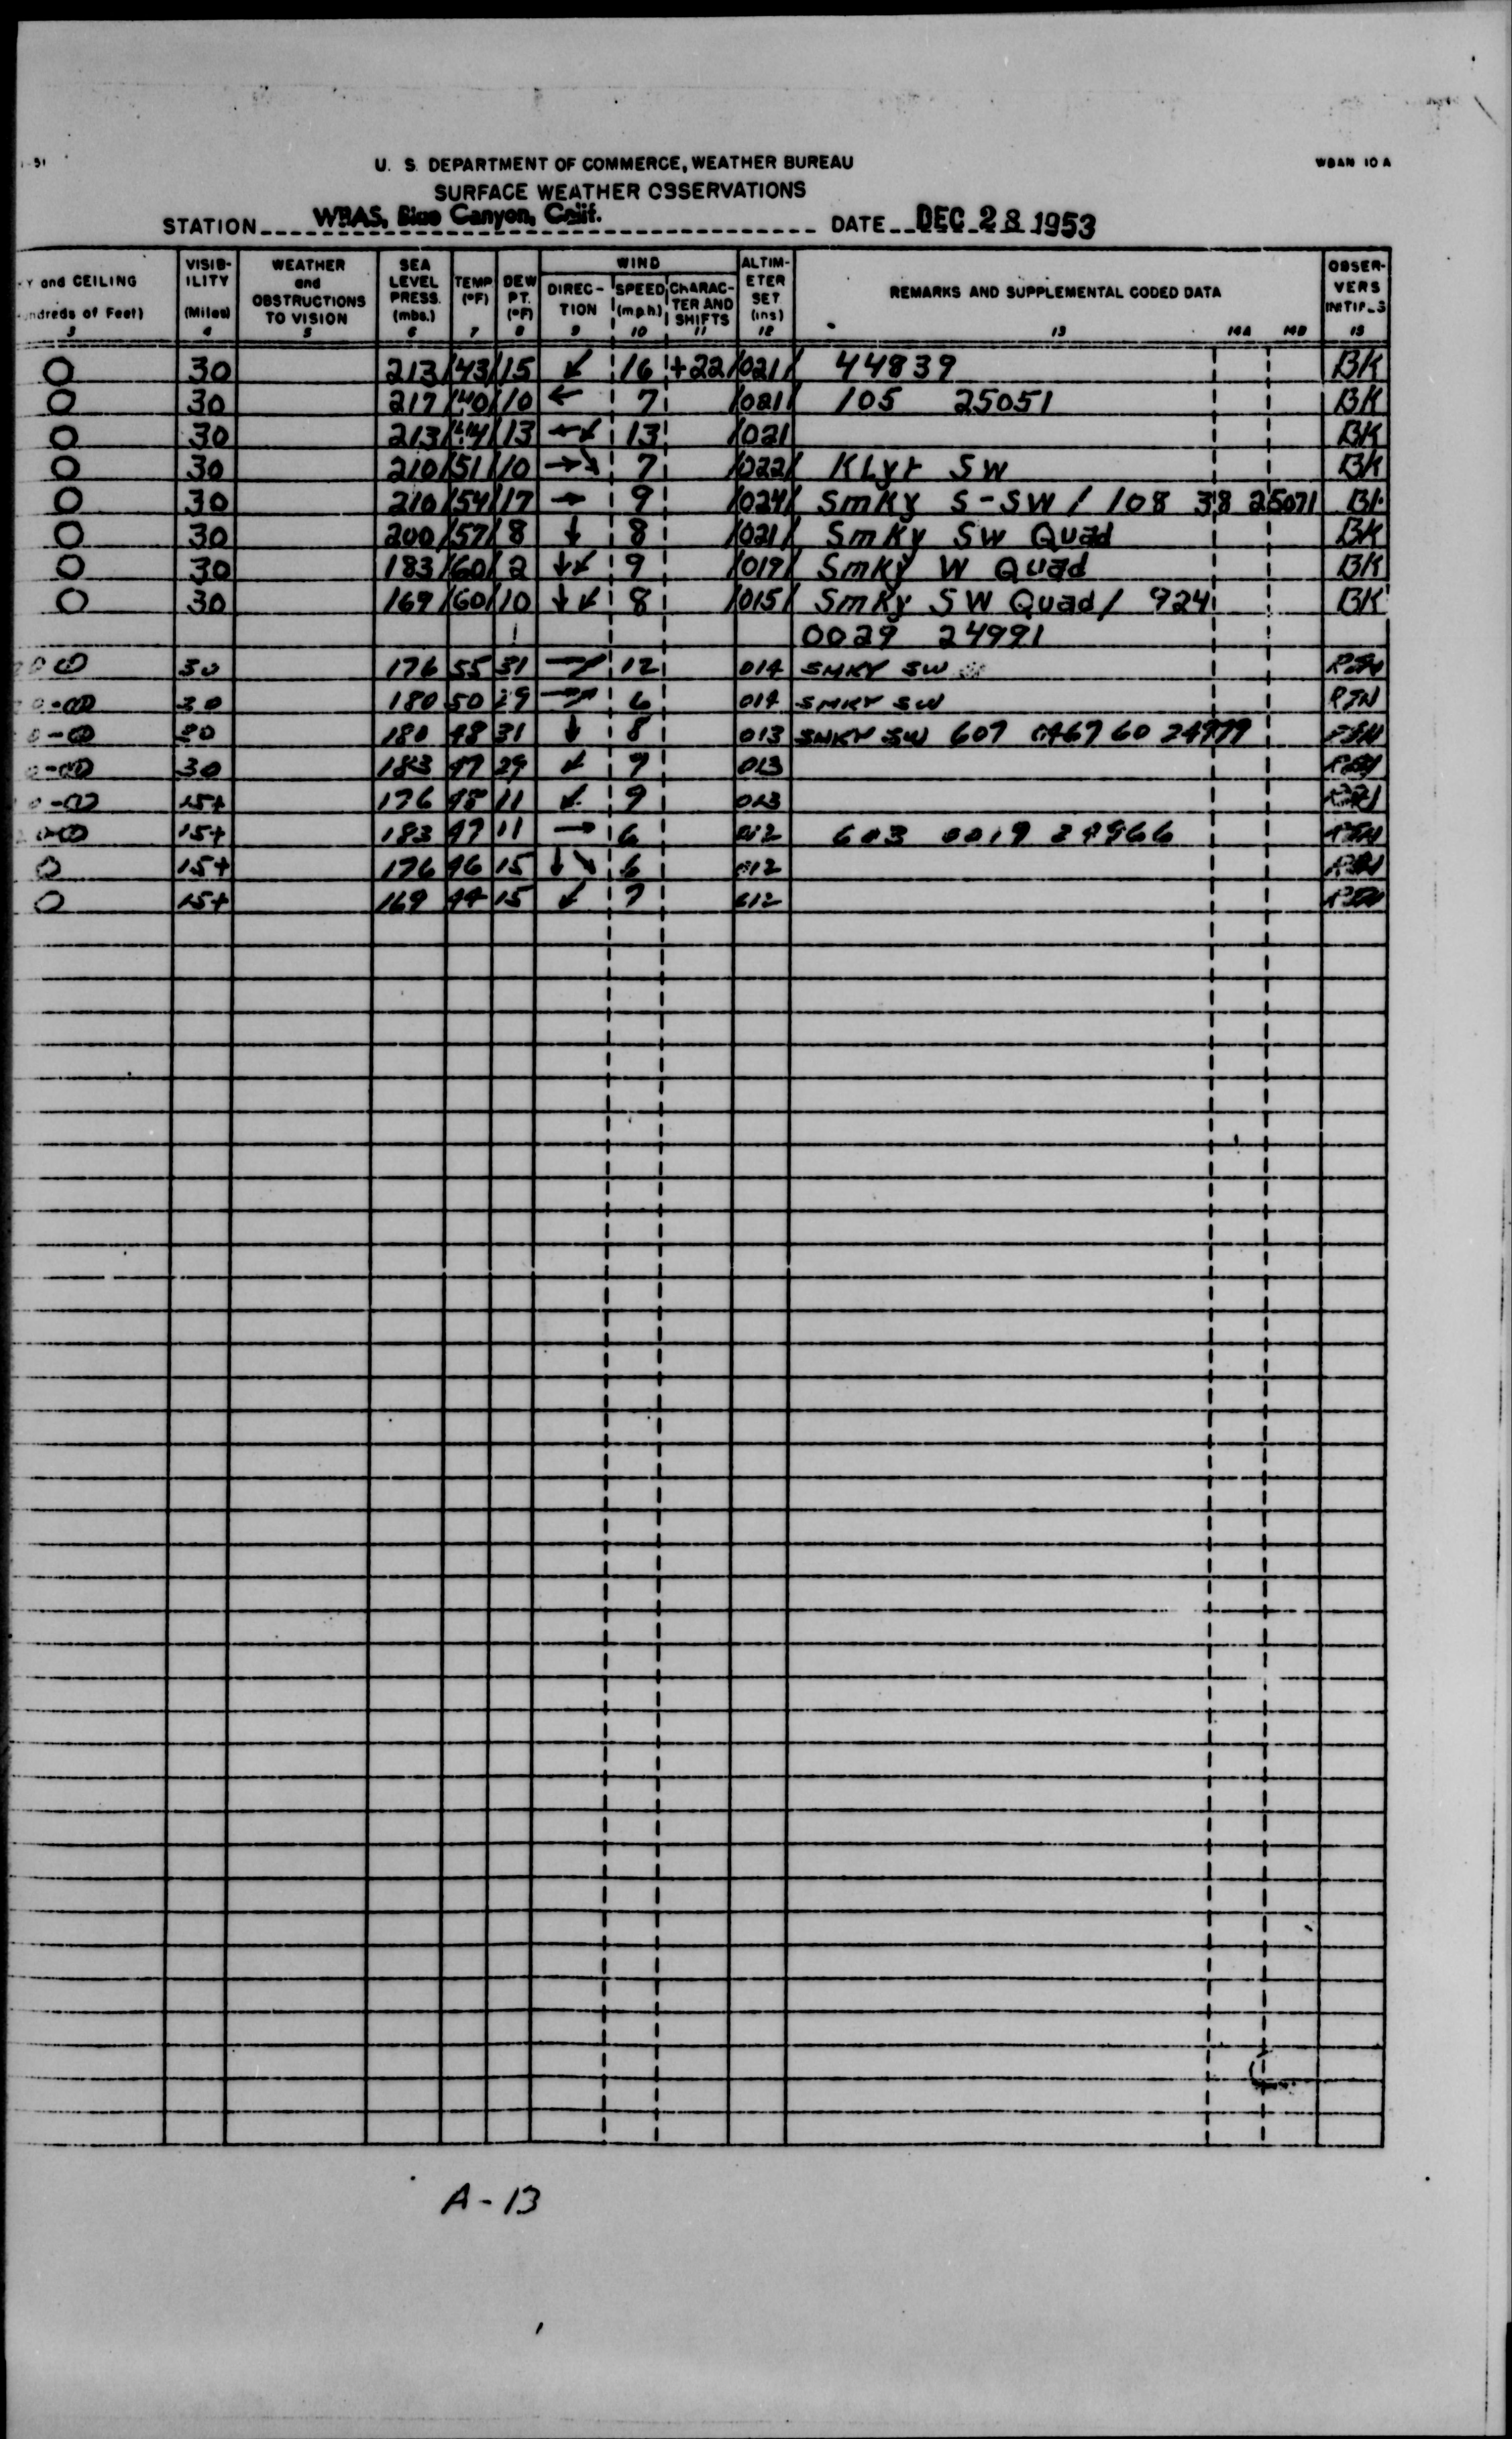 U. S. DEPARTMENT OF COMMERCE, WEATHER BUREAU
WBAN 10 A
SURFACE WEATHER OBSERVATIONS
STATION WBAS, Blue Canyon, Calif. DATE DEC 28 1953
Y and CEILING VISIB-ILITY (Miles) WEATHER and OBSTRUCTIONS TO VISION SEA LEVEL PRESS. (mbs.) TEMP (°F) DEW PT. (°F) WIND DIREC-TION SPEED (m.p.h.) CHARAC-TER AND SHIFTS ALTIM-ETER SET. (ins) REMARKS AND SUPPLEMENTAL CODED DATA OBSER-VERS INITIALS
3 4 5 6 7 8 9 10 11 12 13 14A 14B 15
○ 30 213/43/15 ↙ 16 +22/021/ 44839 BK
○ 30 217/40/10 ← 7 /021/ 105 25051 BK
○ 30 213/44/13 ←↙ 13 /021 BK
○ 30 210/51/10 →↘ 7 /022/ KLyr SW BK
○ 30 210/54/17 → 9 /024/ Smky S-SW / 108 38 25071 BK
○ 30 200/57/8 ↓ 8 /021/ Smky SW Quad BK
○ 30 183/60/2 ↓↙ 9 /019/ Smky W Quad BK
○ 30 169/60/10 ↓↙ 8 /015/ Smky SW Quad / 924 BK
0029 24991
30 176 55 31 12 014 SMKY SW
30 180 50 29 6 014 SMKY SW RJN
30 180 48 31 ↓ 8 013 SMKY SW 607 0467 60 24979
30 183 47 29 ↙ 9 013
15+ 176 48 11 ↙ 9 013
15+ 183 47 11 → 6 012 603 0019 24966
○ 15+ 176 46 15 ↓↘ 6 012
○ 15+ 169 44 15 ↙ 7 012
A-13